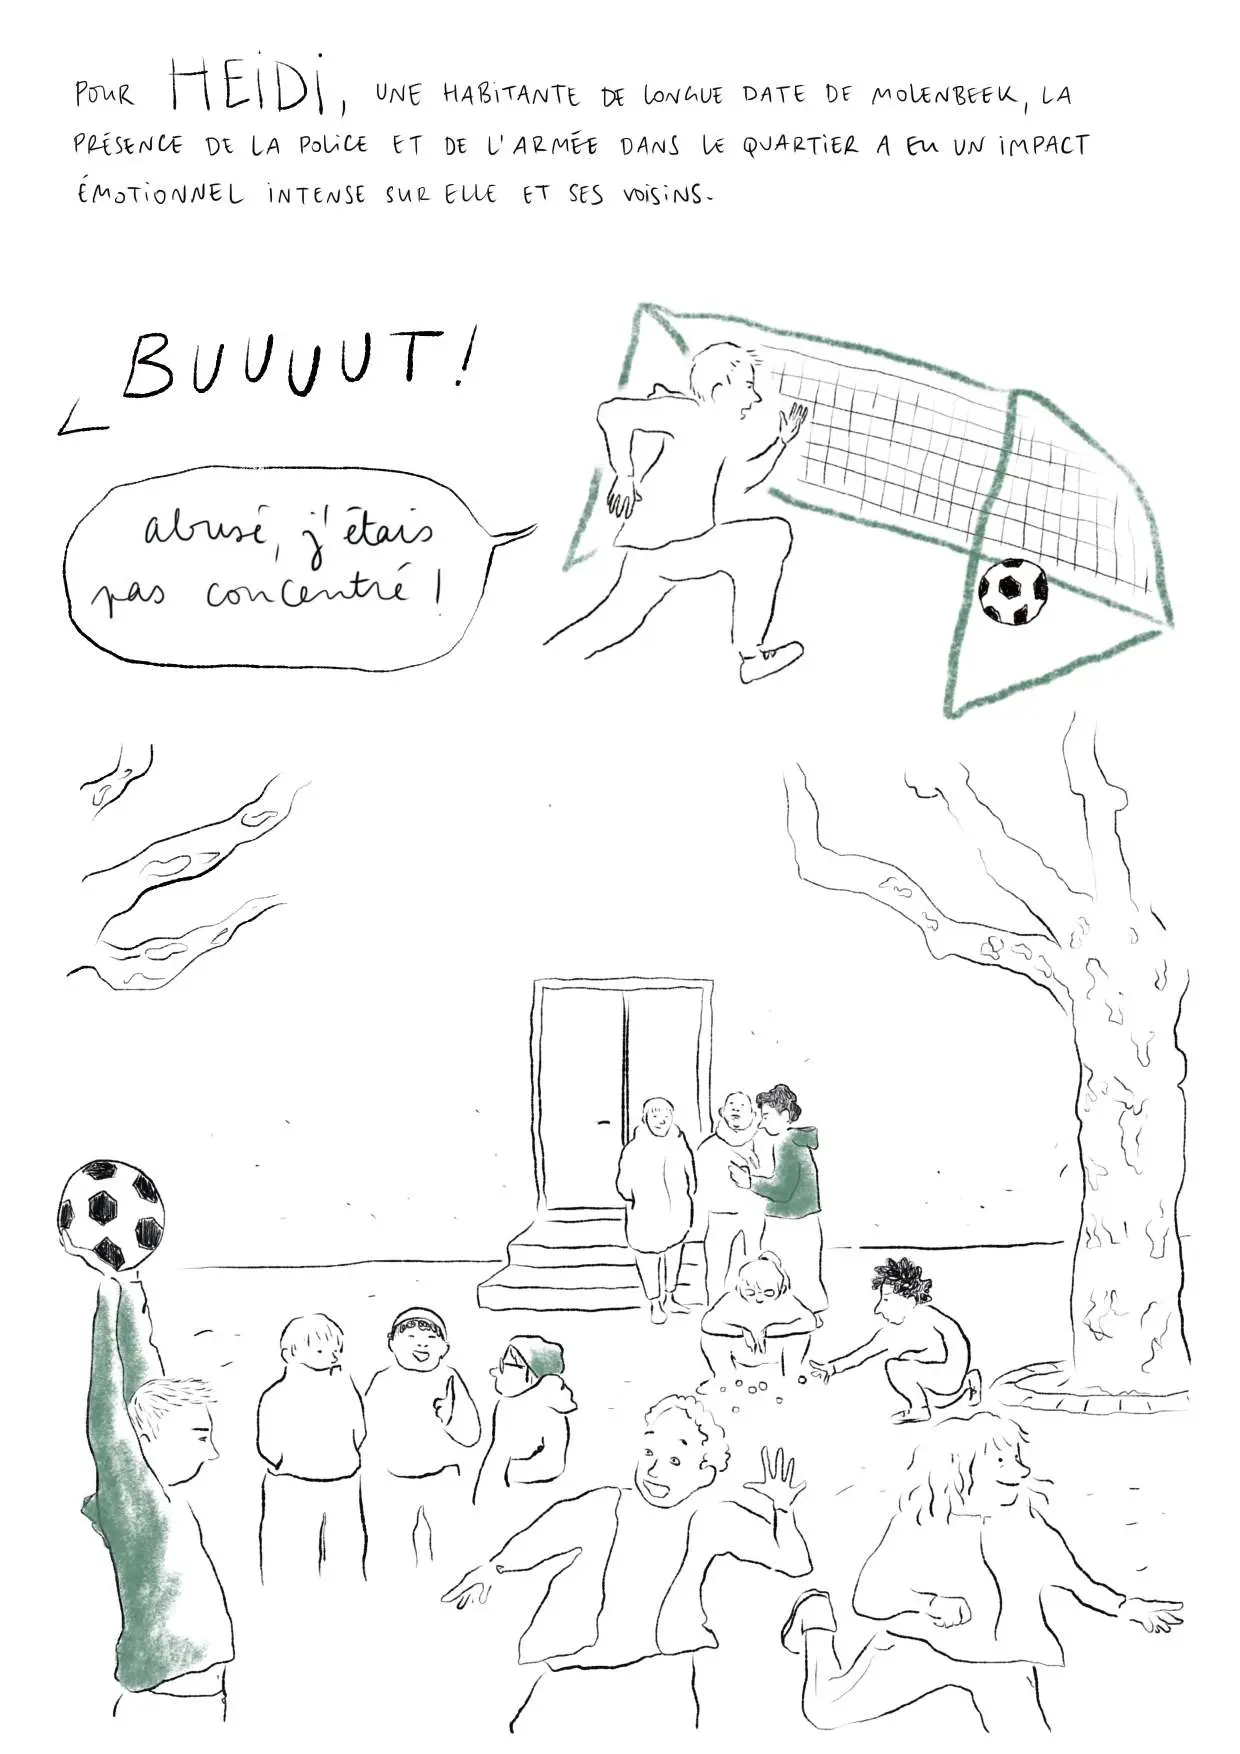 POUR HEIDI, UNE HABITANTE DE LONGUE DATE DE MOLENBEEK, LA
PRÉSENCE DE LA POLICE ET DE L'ARMÉE DANS LE QUARTIER A EU UN IMPACT
ÉMOTIONNEL INTENSE SUR ELLE ET SES VOISINS.
BUUUUT!
abusé, j'étais
pas concentré !